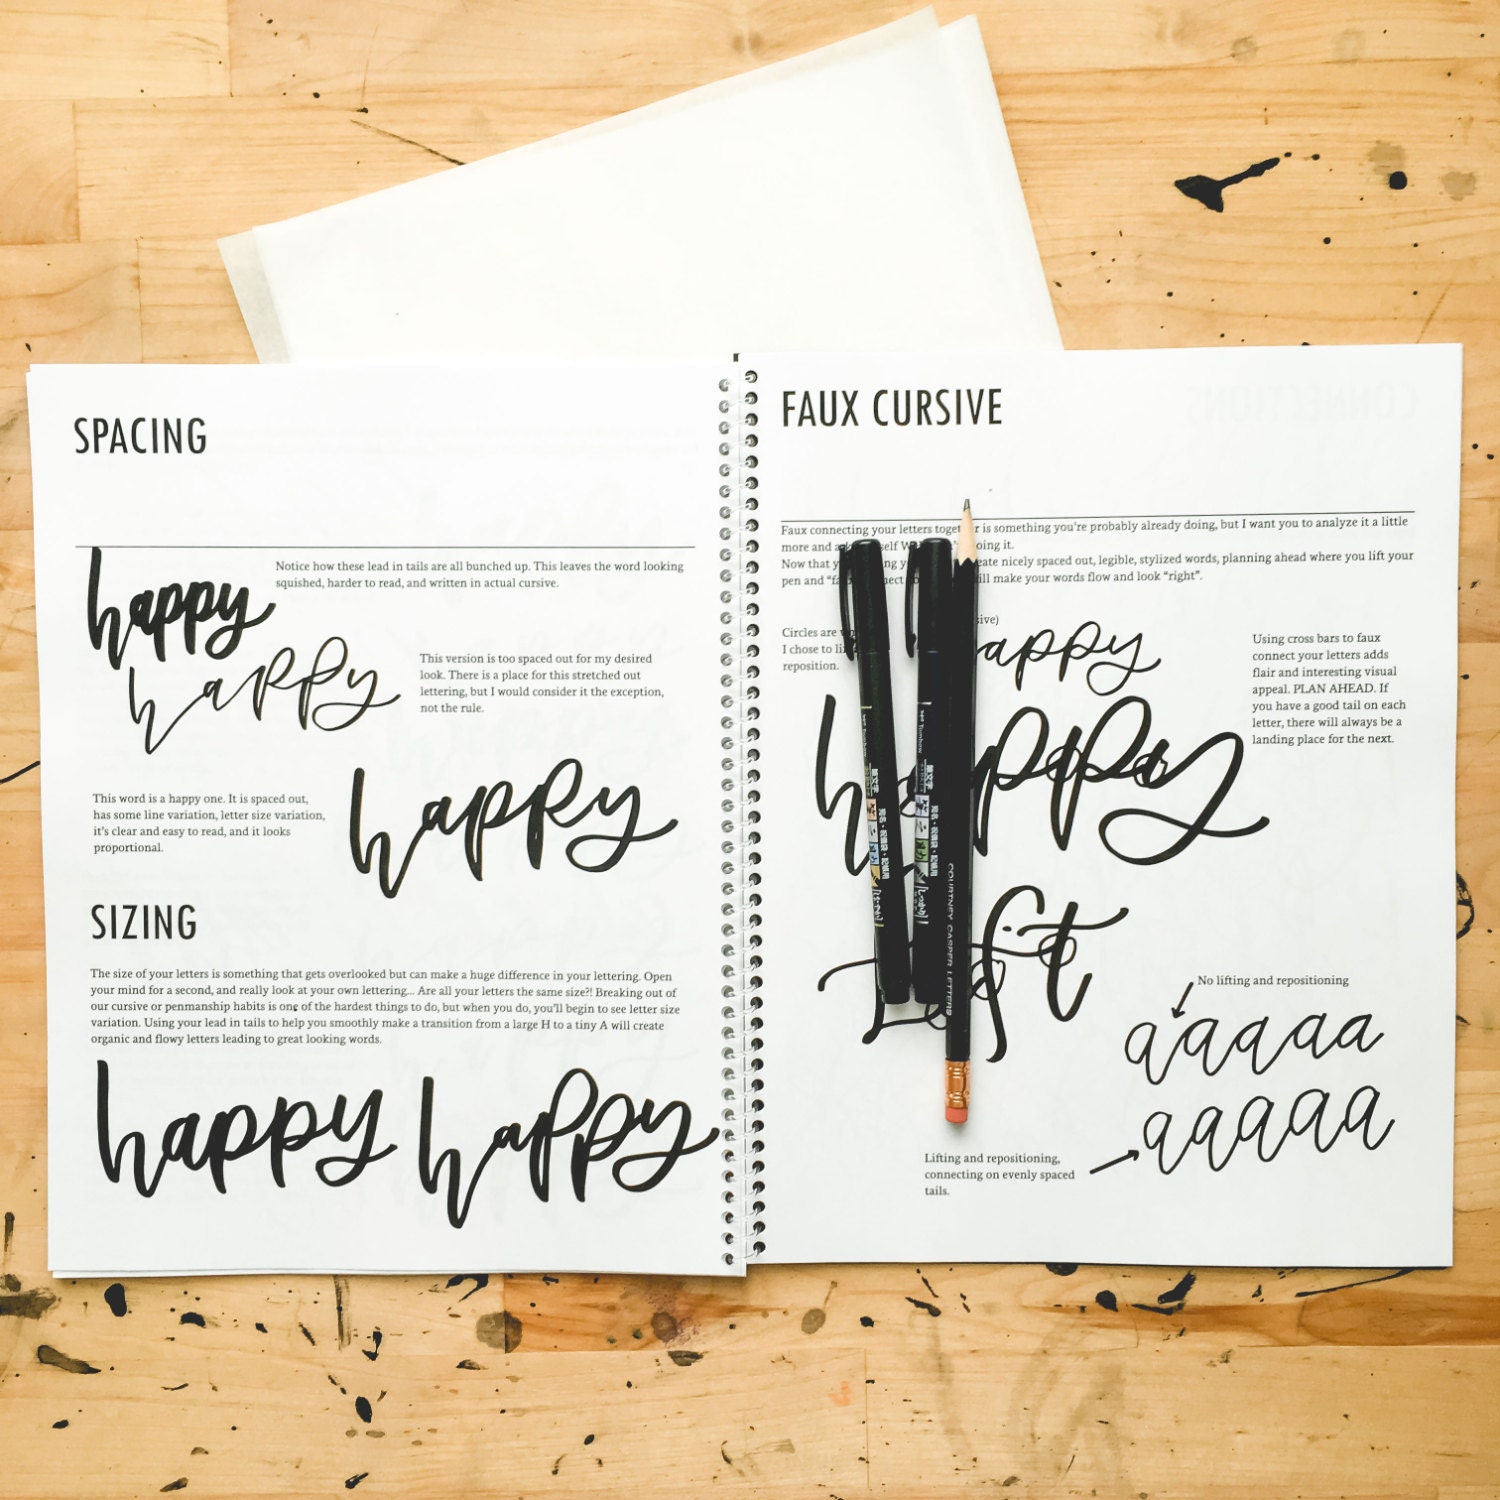 SPACING
Notice how these lead in tails are all bunched up. This leaves the word looking
squished, harder to read, and written in actual cursive.
happy
happy
This version is too spaced out for my desired
look. There is a place for this stretched out
lettering, but I would consider it the exception,
not the rule.
This word is a happy one. It is spaced out,
has some line variation, letter size variation,
it's clear and easy to read, and it looks
proportional.
happy
SIZING
The size of your letters is something that gets overlooked but can make a huge difference in your lettering. Open
your mind for a second, and really look at your own lettering... Are all your letters the same size?! Breaking out of
our cursive or penmanship habits is one of the hardest things to do, but when you do, you'll begin to see letter size
variation. Using your lead in tails to help you smoothly make a transition from a large H to a tiny A will create
organic and flowy letters leading to great looking words.
happy happy
CONNECTIONS
FAUX CURSIVE
Faux connecting your letters together is something you're probably already doing, but I want you to analyze it a little
more and doing it.
Now that nicely spaced out, legible, stylized words, planning ahead where you lift your
pen and will make your words flow and look "right".
Circles are
I chose to
reposition.
happy
Using cross bars to faux
connect your letters adds
flair and interesting visual
appeal. PLAN AHEAD. If
you have a good tail on each
letter, there will always be a
landing place for the next.
happy
Tombow
Tombow
COURTNEY CASPER LETTERS
No lifting and repositioning
aaaaa
aaaaa
Lifting and repositioning,
connecting on evenly spaced
tails.